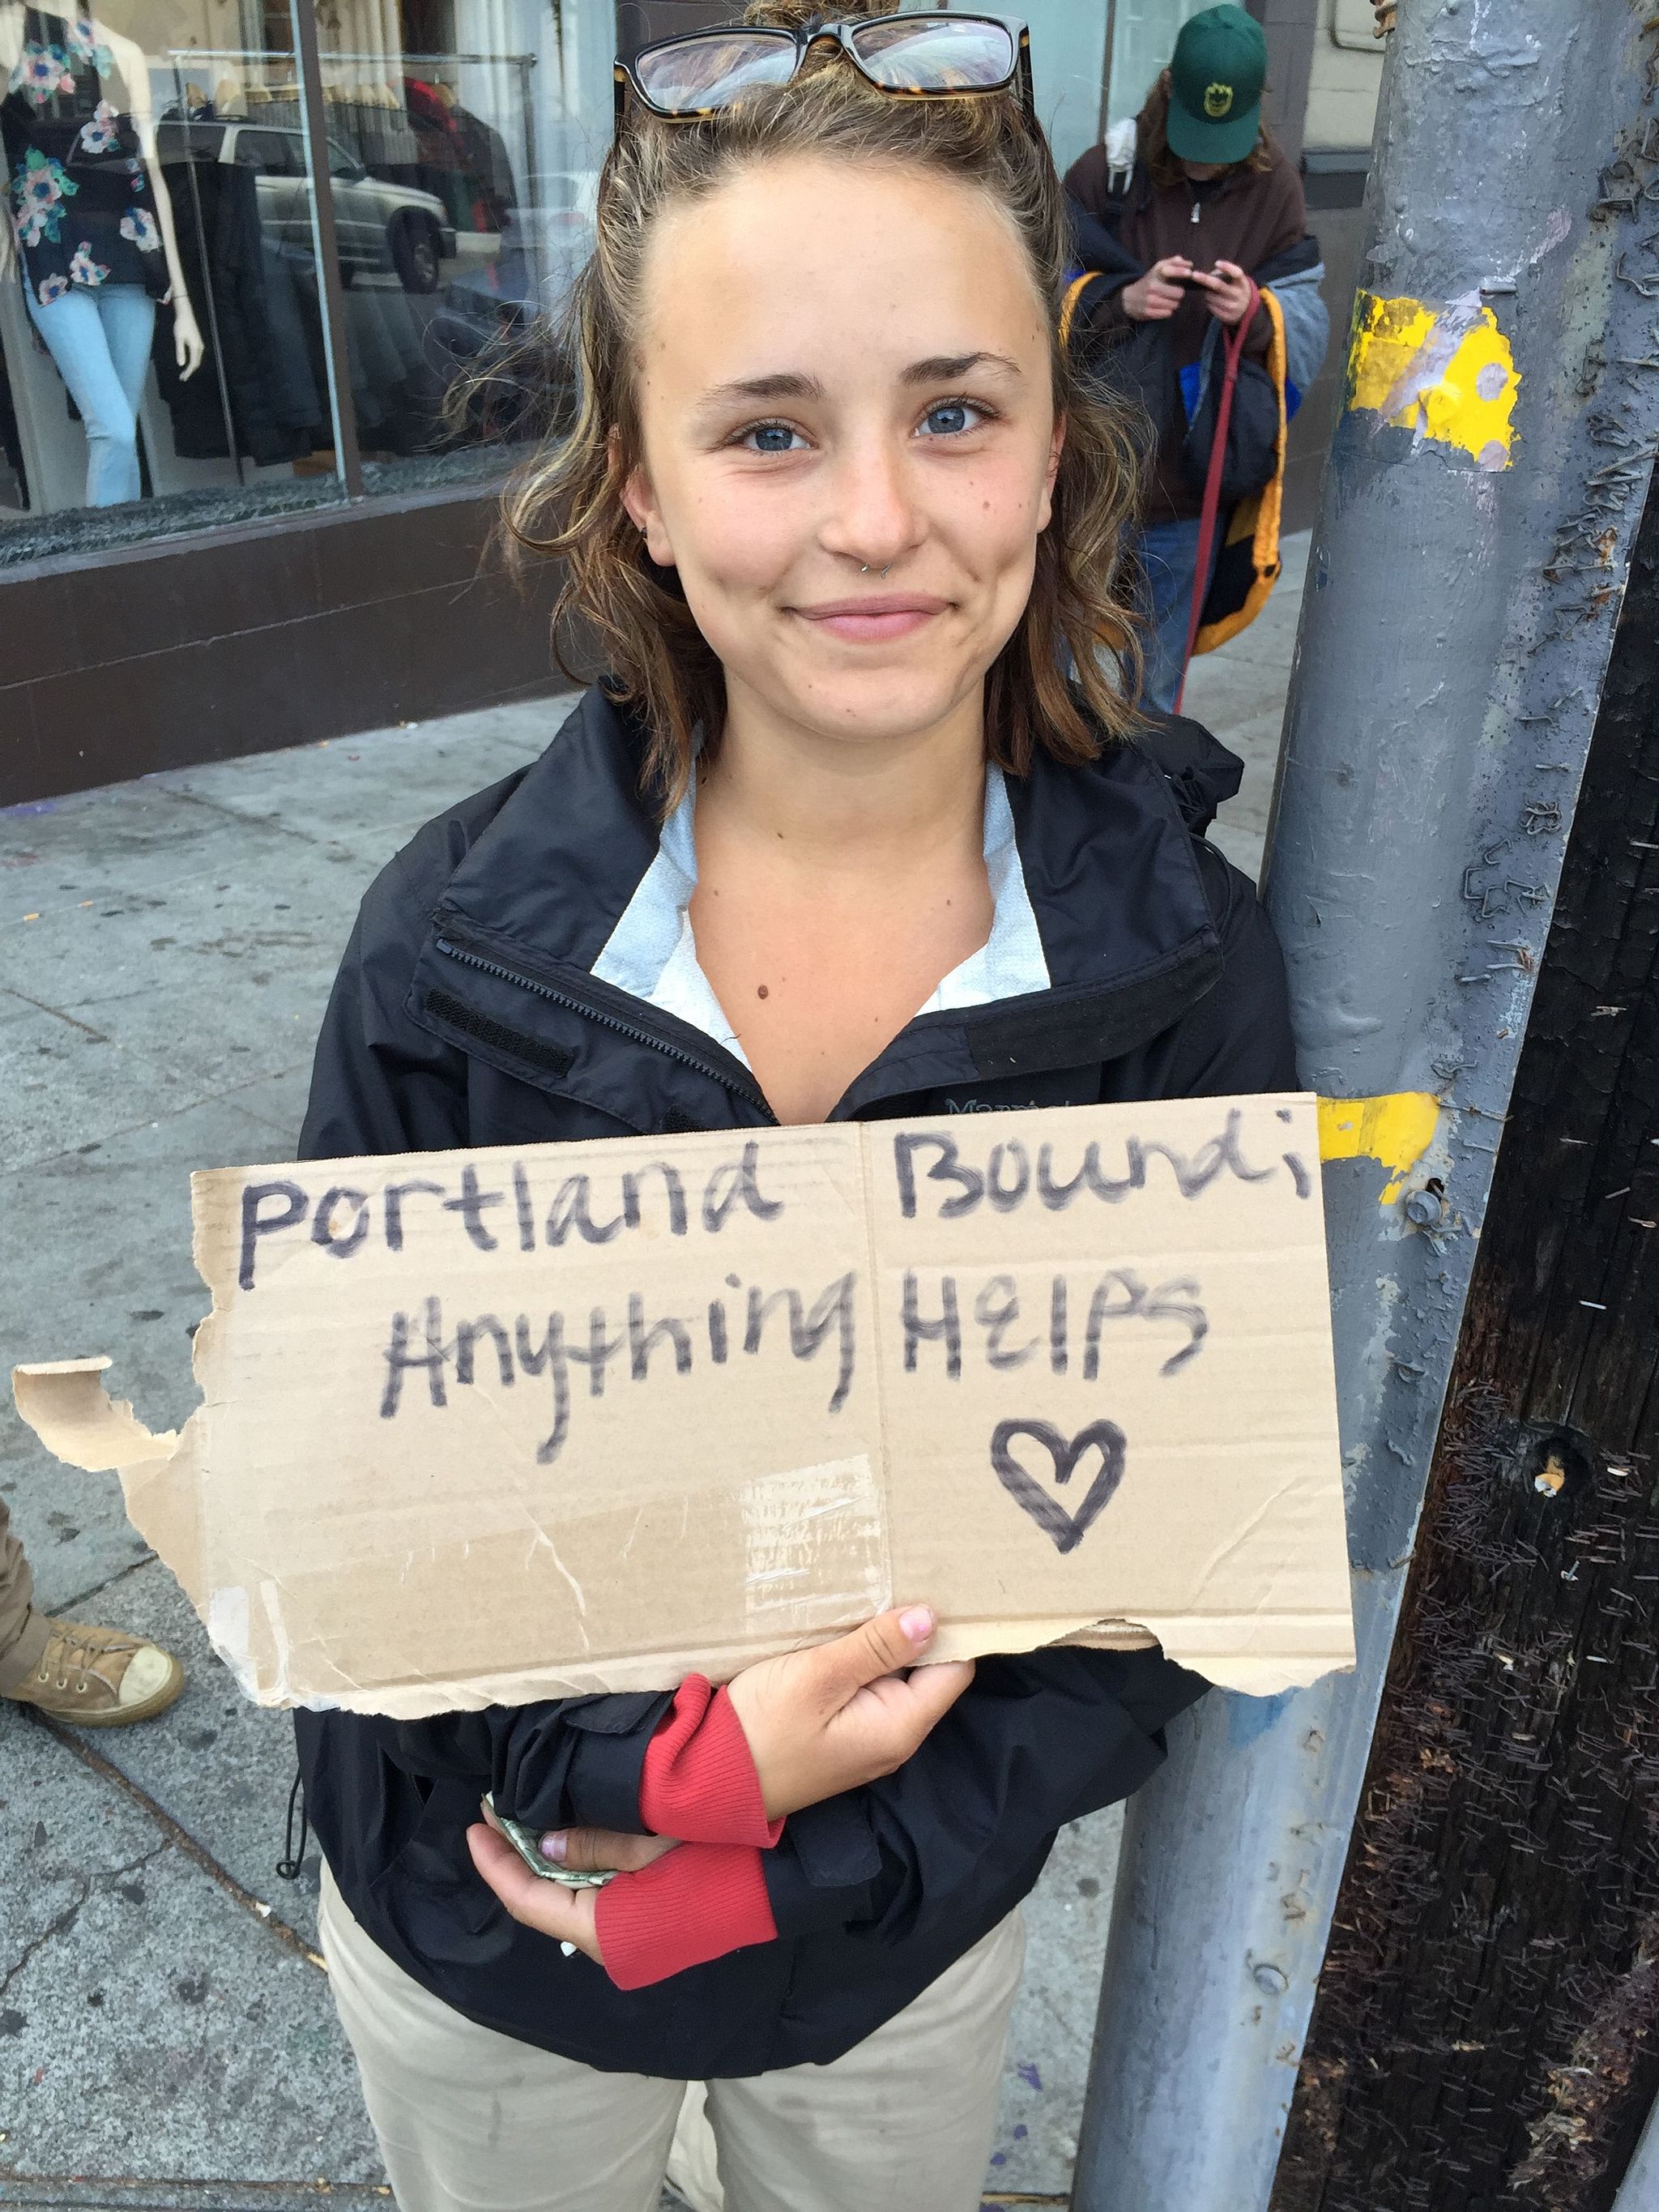 Portland Bound;
Anything HElPs